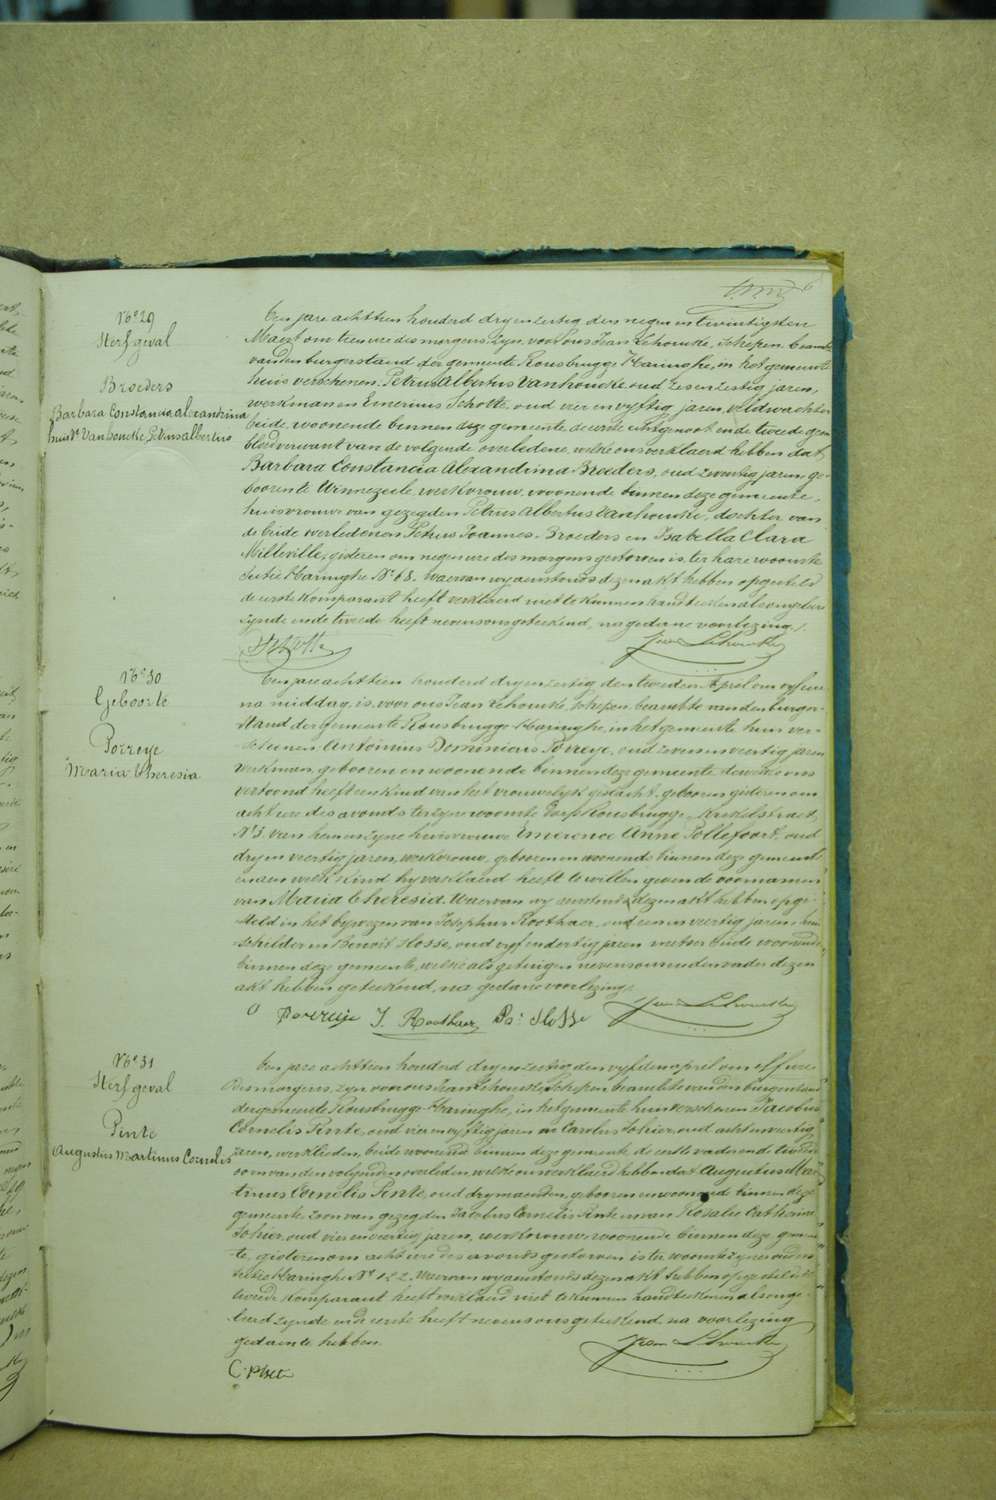 6
No 29
Sterfgeval
Broeders
Barbara Constancia alexandrina
huisv. Vanhoucke Petrus albertus
Een jare achttien honderd dryenzestig den negenentwintigsten
Maert om tien ure des morgens zyn, voor ons Jean Lehoucke, schepen beambte
van den burgerstand der gemeente Rousbrugge Haringhe, in het gemeente
huis verschenen Petrus Albertus Vanhoucke oud zesenzestig jaren,
werkman en Emerinus Schotte, oud vier en vyftig jaren, veldwachter
beide, woonende binnen deze gemeente de eerste echtgenoot en de tweede geen
bloedverwant van de volgende overledene, welke ons verklaerd hebben dat,
Barbara Constancia Alexandrina Broeders, oud zeventig jaren, ge-
booren te Winnezeele, werkvrouw, woonende binnen deze gemeente,
huisvrouw van gezegden Petrus Albertus Vanhoucke, dochter van
de beide overledenen Petrus Joannes Broeders en Isabella Clara
Milleville, gisteren om negen ure des morgens gestorven is ter hare woonste
Sectie Haringhe No 68. waervan wy aenstonds dezen akt hebben opgesteld
de eerste komparant heeft verklaerd niet te kunnen handteekenen als ongeleerd
zynde en de tweede heeft nevens ons geteekend, na gedane voorlezing.
Schotte Jean Lehoucke
No 30
Geboorte
Porreye
Maria theresia
Een jare achttien honderd dryenzestig den tweeden April om vyf ure
na middag, is voor ons Jean Lehoucke, schepen beambte van den burger-
stand der gemeente Rousbrugge Haringhe, in het gemeente huis ver-
schenen Antoinius Dominicus Porreye, oud zevenenveertig jaren
werkman, gebooren en woonende binnen deze gemeente dewelke ons
vertoond heeft een kind van het vrouwelyk geslacht, gebooren gisteren om
acht ure des avonds ter zyne woonste Dorp Rousbrugge, Krekelstraet,
No 3 van hem en zyne huisvrouwe Emerence Anne Pollefoort, oud
dry en veertig jaren, werkvrouw, gebooren en woonende binnen deze gemeente
en aen welk kind hy verklaerd heeft te willen geven de voornamen
van Maria theresia. Waervan wy aenstonds dezen akt hebben opge-
steld in het bywezen van Josephus Roothaer, oud een en veertig jaren, huis
schilder en Benoit Hosse, oud vyf en dertig jaren metser beide woonende
binnen deze gemeente, welke als getuigen nevens ons en den vader dezen
akt hebben geteekend, na gedane voorlezing.
Porreye J. Roothaer Bt Hosse Jean Lehoucke
No 31
Sterfgeval
Pinte
Augustus Martinus Cornelis
Een jare achttien honderd dryenzestig den vyfden april om elf ure
des morgens, zyn voor ons Jean Lehoucke, Schepen beambte van den burgerstand
der gemeente Rousbrugge Haringhe, in het gemeente huis verschenen Jacobus
Cornelis Pinte, oud vier en vyftig jaren en Carolus Sohier, oud achtenveertig
jaren, werklieden, beide woonende binnen deze gemeente de eerste vader en de tweede
oom van den volgenden overleden, welke ons verklaerd hebben dat Augustus Mar-
tinus Cornelis Pinte, oud dry maenden, gebooren en woonende binnen deze
gemeente, zoon van gezegden Jacobus Cornelis Pinte en van Rosalie Catherine
Sohier, oud vier en veertig jaren, werkvrouw, woonende binnen deze gemeen-
te, gisteren om acht ure des avonds gestorven is ter woonste zyner ouders
sectie Haringhe No 122. Waervan wy aenstonds dezen akt hebben opgesteld de
tweede komparant heeft verklaerd niet te kunnen handteekenen als onge-
leerd zynde en de eerste heeft nevens ons geteekend, na voorlezing
gedaen te hebben.
Jean Lehoucke